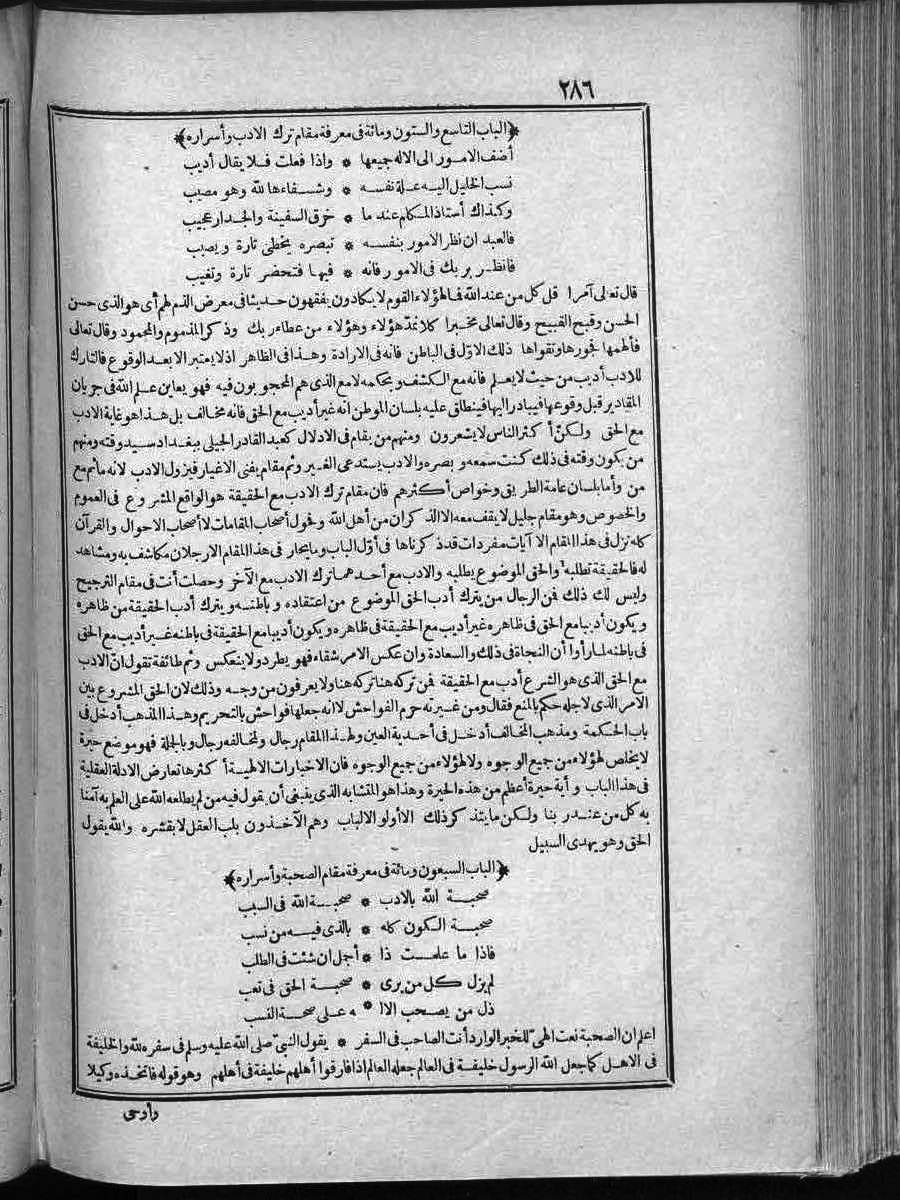 ٢٨٦
﴿الباب التاسع والستون ومائة فى معرفة مقام ترك الادب وأسراره﴾
أضف الامور الى الاله جميعها * واذا فعلت فلا يقال أديب
نسب الخليل اليه علة نفسه * وشفاءها لله وهو مصيب
وكذاك أستاذ المكلم عند ما * خرق السفينة والجدار عجيب
فالعبد ان نظر الامور بنفسه * تبصره يخطئ تارة ويصيب
فانظر بربك فى الامور فانه * فيها فتحضر تارة وتغيب
قال تعالى آمرا قل كل من عند الله فمالهؤلاء القوم لا يكادون يفقهون حديثا فى معرض الذم لهم أى هو الذى حسن
الحسن وقبح القبيح وقال تعالى مخبرا كلا نمد هؤلاء وهؤلاء من عطاء ربك وذكر المذموم والمحمود وقال تعالى
فألهمها فجورها وتقواها ذلك الاول فى الباطن فانه فى الارادة وهذا فى الظاهر اذ لا يعتبر الا بعد الوقوع فالتارك
للادب أديب من حيث لا يعلم فانه مع الكشف وبحكمه لا مع الذى هم المحجوبون فيه فهو يعاين علم الله فى جريان
المقادير قبل وقوعها فيبادر اليها فينطلق عليه بلسان الموطن انه غير أديب مع الحق فانه مخالف بل هذا هو غاية الادب
مع الحق ولكن أكثر الناس لا يشعرون ومنهم من يقام فى الادلال كعبد القادر الجيلى ببغداد سيد وقته ومنهم
من يكون وقته فى ذلك كنت سمعه وبصره والادب يستدعى الغير وثم مقام يفنى الاغيار فيزول الادب لانه ماثم مع
من وأما بلسان عامة الطريق وخواص أكثرهم فان مقام ترك الادب مع الحقيقة هو الواقع المشروع فى العموم
والخصوص وهو مقام جليل لا يقف معه الا الذكران من أهل الله وفحول أصحاب المقامات لا أصحاب الاحوال والقرآن
كله نزل فى هذا المقام الا آيات مفردات قد ذكرناها فى أول الباب وما يحار فى هذا المقام الا رجلان مكاشف به ومشاهد
له فالحقيقة تطلبه والحق الموضوع يطلبه والادب مع أحدهما ترك الادب مع الآخر وحصلت أنت فى مقام الترجيح
وليس لك ذلك فمن الرجال من يترك أدب الحق الموضوع من اعتقاده وباطنه ويترك أدب الحقيقة من ظاهره
ويكون أديبا مع الحق فى ظاهره غير أديب مع الحقيقة فى ظاهره ويكون أديبا مع الحقيقة فى باطنه غير أديب مع الحق
فى باطنه لما رأوا أن النجاة فى ذلك والسعادة وان عكس الامر شقاء فهو يطرد ولا ينعكس وثم طائفة تقول ان الادب
مع الحق الذى هو الشرع أدب مع الحقيقة فمن تركه هنا تركه هنا ولا يعرفون من وجه وذلك لان الحق المشروع بين
الامر الذى لاجله حكم بالمنع فقال ومن غيرته حرم الفواحش لا انه جعلها فواحش بالتحريم وهذا المذهب أدخل فى
باب الحكمة ومذهب المخالف أدخل فى أحدية العين ولهذا المقام رجال ولمخالفه رجال وبالجملة فهو موضع حيرة
لا يخلص لهؤلاء من جميع الوجوه ولا لهؤلاء من جميع الوجوه فان الاخبارات الالهية أكثرها تعارض الادلة العقلية
فى هذا الباب وأية حيرة أعظم من هذه الحيرة وهذا هو المتشابه الذى ينبغى أن يقول فيه من لم يطلعه الله على العلم به آمنا
به كل من عند ربنا ولكن ما يتذكر ذلك الا أولو الالباب وهم الآخذون بلب العقل لا بقشره والله يقول
الحق وهو يهدى السبيل
﴿الباب السبعون ومائة فى معرفة مقام الصحبة وأسراره﴾
صحبة الله بالادب * صحبة الله فى السبب
صحبة الكون كله * بالذى فيه من نسب
فاذا ما علمت ذا * أجمل ان شئت فى الطلب
لم يزل كل من يرى * صحبة الحق فى تعب
ذل من يصحب الا * له على صحة النسب
اعلم ان الصحبة نعت الهى للخبر الوارد أنت الصاحب فى السفر * يقول النبى صلى الله عليه وسلم فى سفره لله والخليفة
فى الاهل كما جعل الله الرسول خليفة فى العالم جعله العالم اذا فارقوا أهلهم خليفة فى أهلهم وهو قوله فاتخذه وكيلا
وأوحى